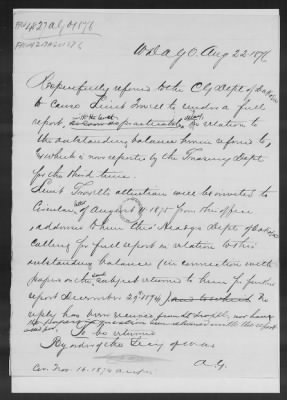 4827 A.G.O. 1876
W.D. A.G.O. Aug 22 1876
Respectfully referred to the C'g Dept of Dakota
to cause Lieut to render a full
report, as soon as practicable, in relation to
the outstanding balance herein referred to,
& which is now reported by the Treasury Dept
for the third time.
Lieut attention will be invited to
Circular, of August 9, 1875 from this office
addressed to him thro' Headqrs Dept of Dakota
Calling for full report in relation to this
outstanding balance (in connection with
papers on the subject returned to him for further
report December 29th 1874) No
reply has been received nor have
the papers in question been returned with the report
To be returned
By order of the Secy of War
A.G.
Nov. 16. 1874